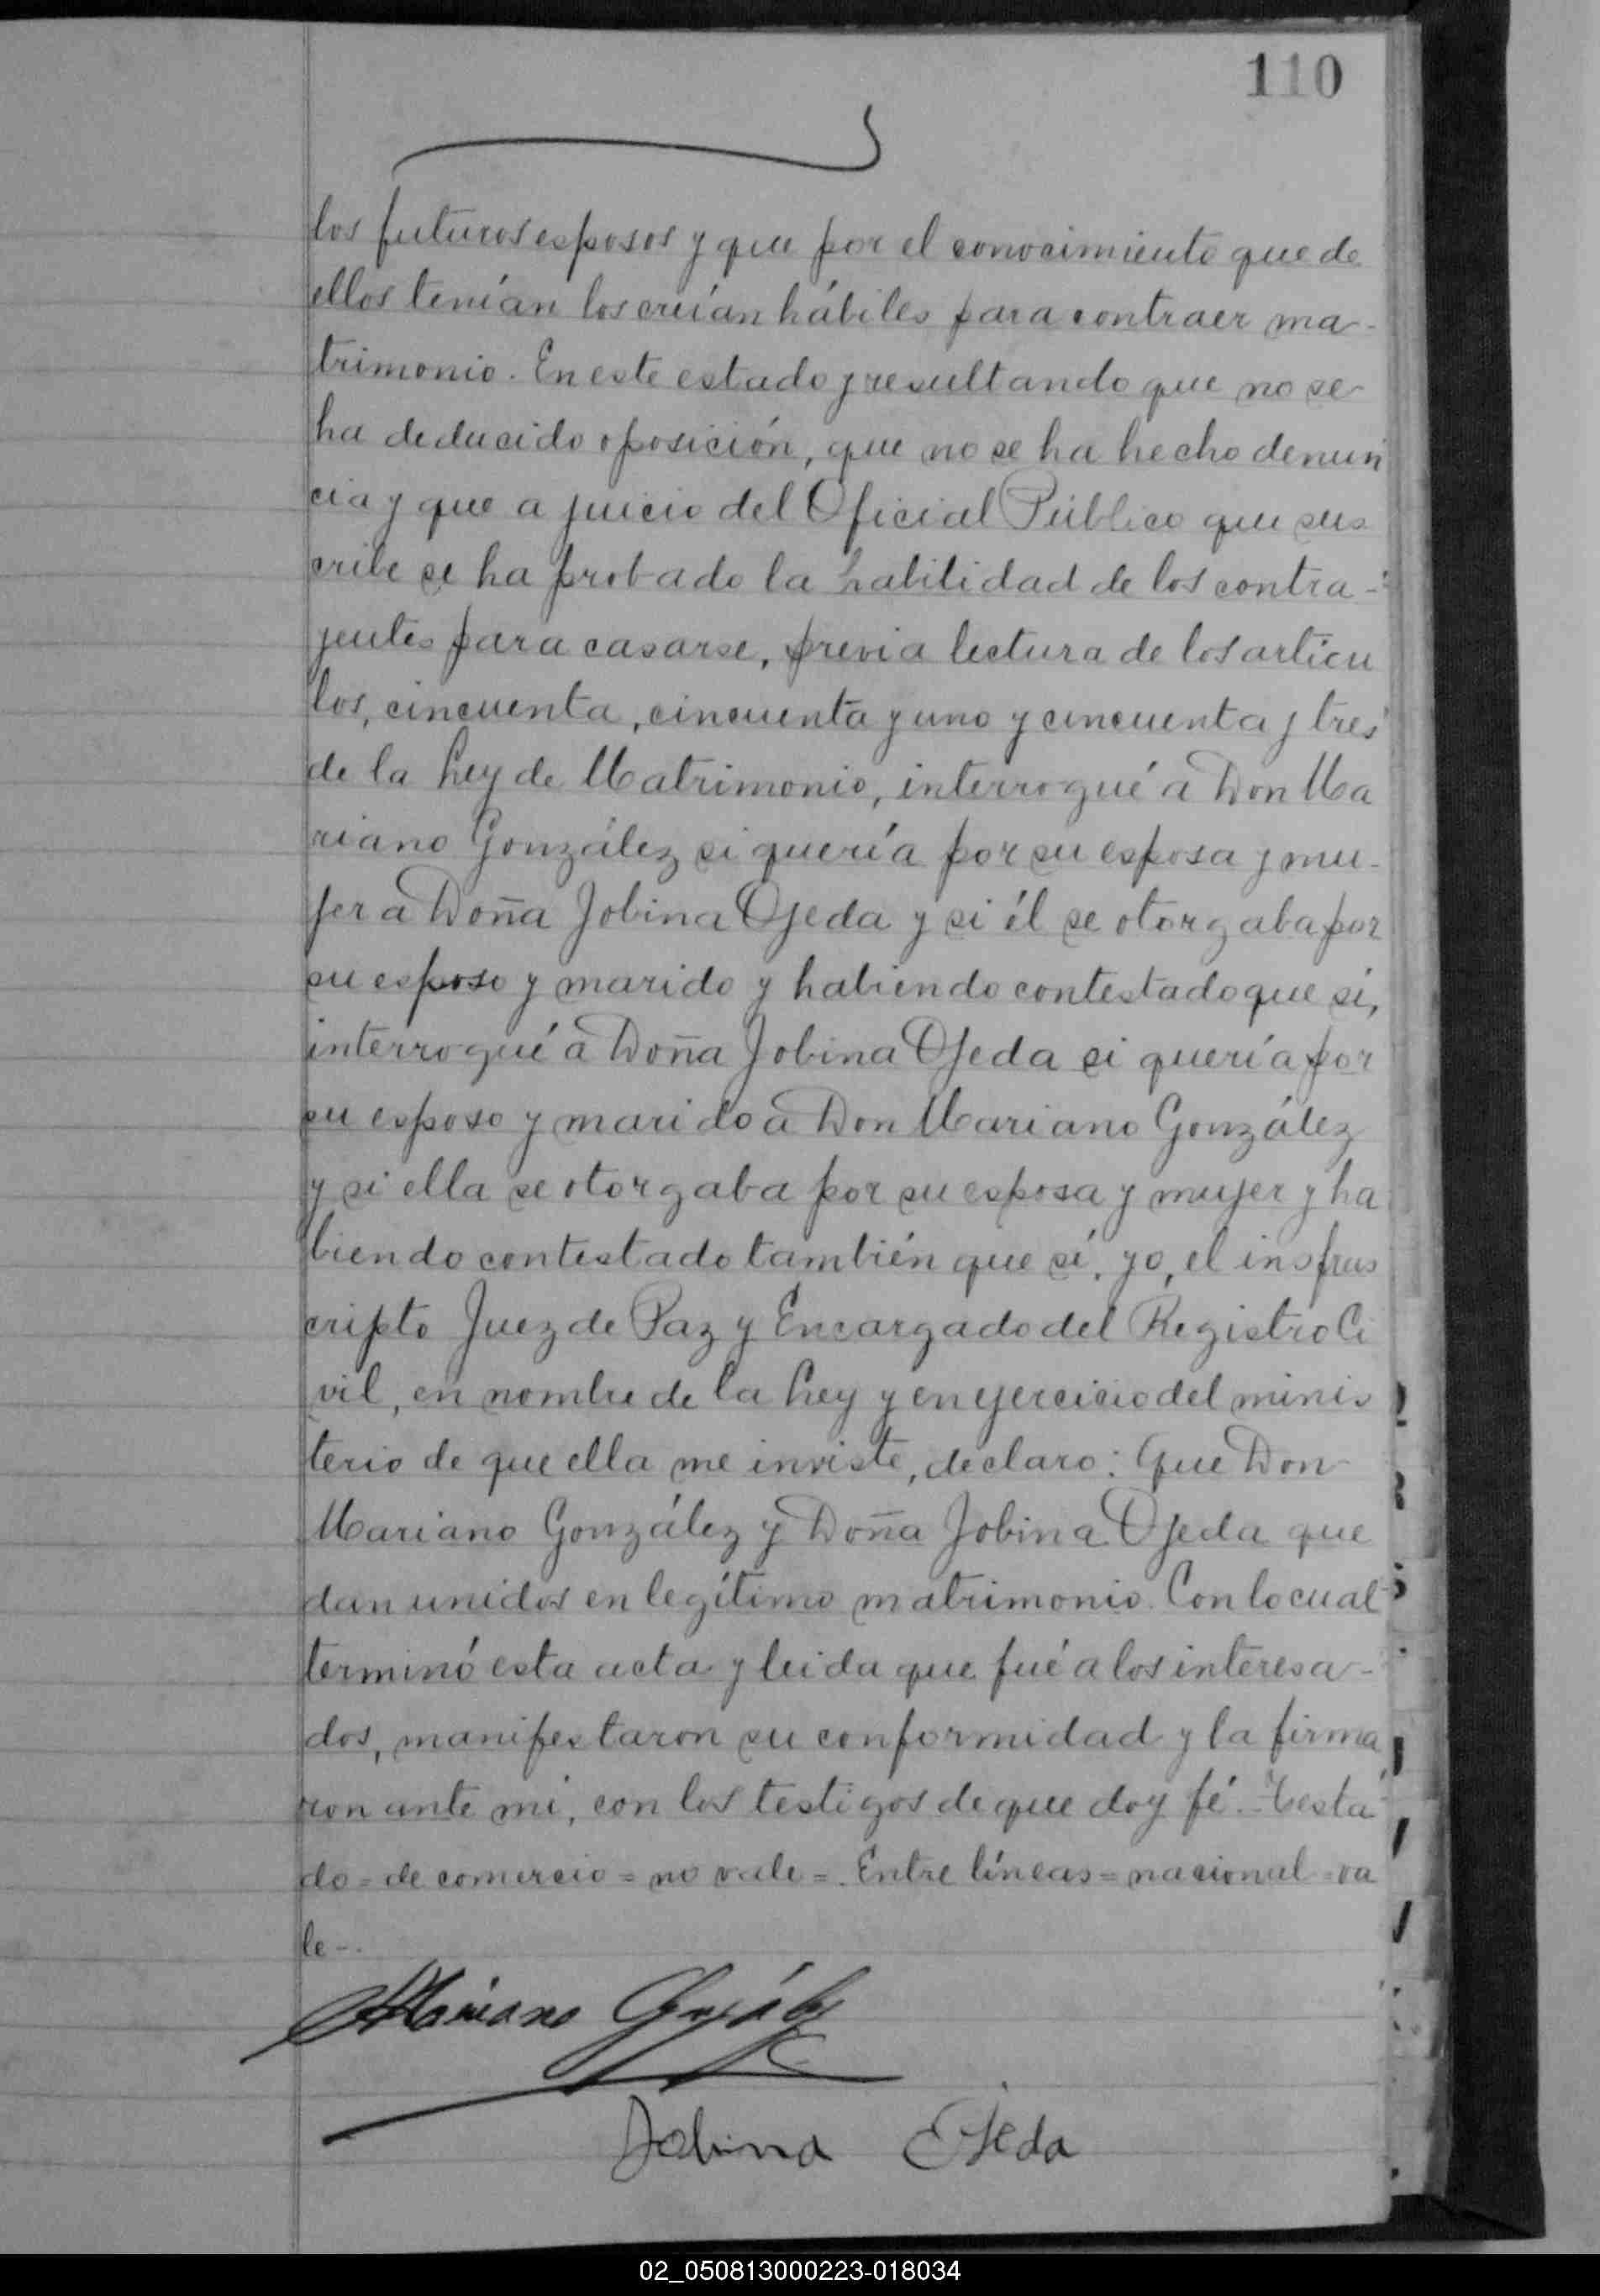 110
los futuros esposos y que por el conocimiento que de
ellos tenían los creían hábiles para contraer ma-
trimonio. En este estado y resultando que no se
ha deducido oposición, que no se ha hecho denun
cia y que a juicio del Oficial Público que sus
cribe se ha probado la habilidad de los contra-
yentes para casarse, previa lectura de los articu
los, cincuenta, cincuenta y uno y cincuenta y tres
de la Ley de Matrimonio, interrogué a Don Ma
riano González si quería por su esposa y mu-
jer a Doña Jobina Ojeda y si él se otorgaba por
su esposo y marido y habiendo contestado que si,
interrogué a Doña Jobina Ojeda si quería por
su esposo y marido a Don Mariano González
y si ella se otorgaba por su esposa y mujer y ha
biendo contestado también que sí, yo, el insfras
cripto Juez de Paz y Encargado del Registro Ci
vil, en nombre de la Ley y en ejercicio del minis
terio de que ella me inviste, declaro: Que Don
Mariano González y Doña Jobina Ojeda que
dan unidos en legítimo matrimonio. Con lo cual
terminó esta acta y leida que fué a los interesa-
dos, manifestaron su conformidad y la firma
ron ante mi, con los testigos de que doy fé.- Testa
do = de comercio = no vale =. Entre líneas = nacional = va
le-.
Mariano González
Jobina Ojeda
02_050813000223-018034